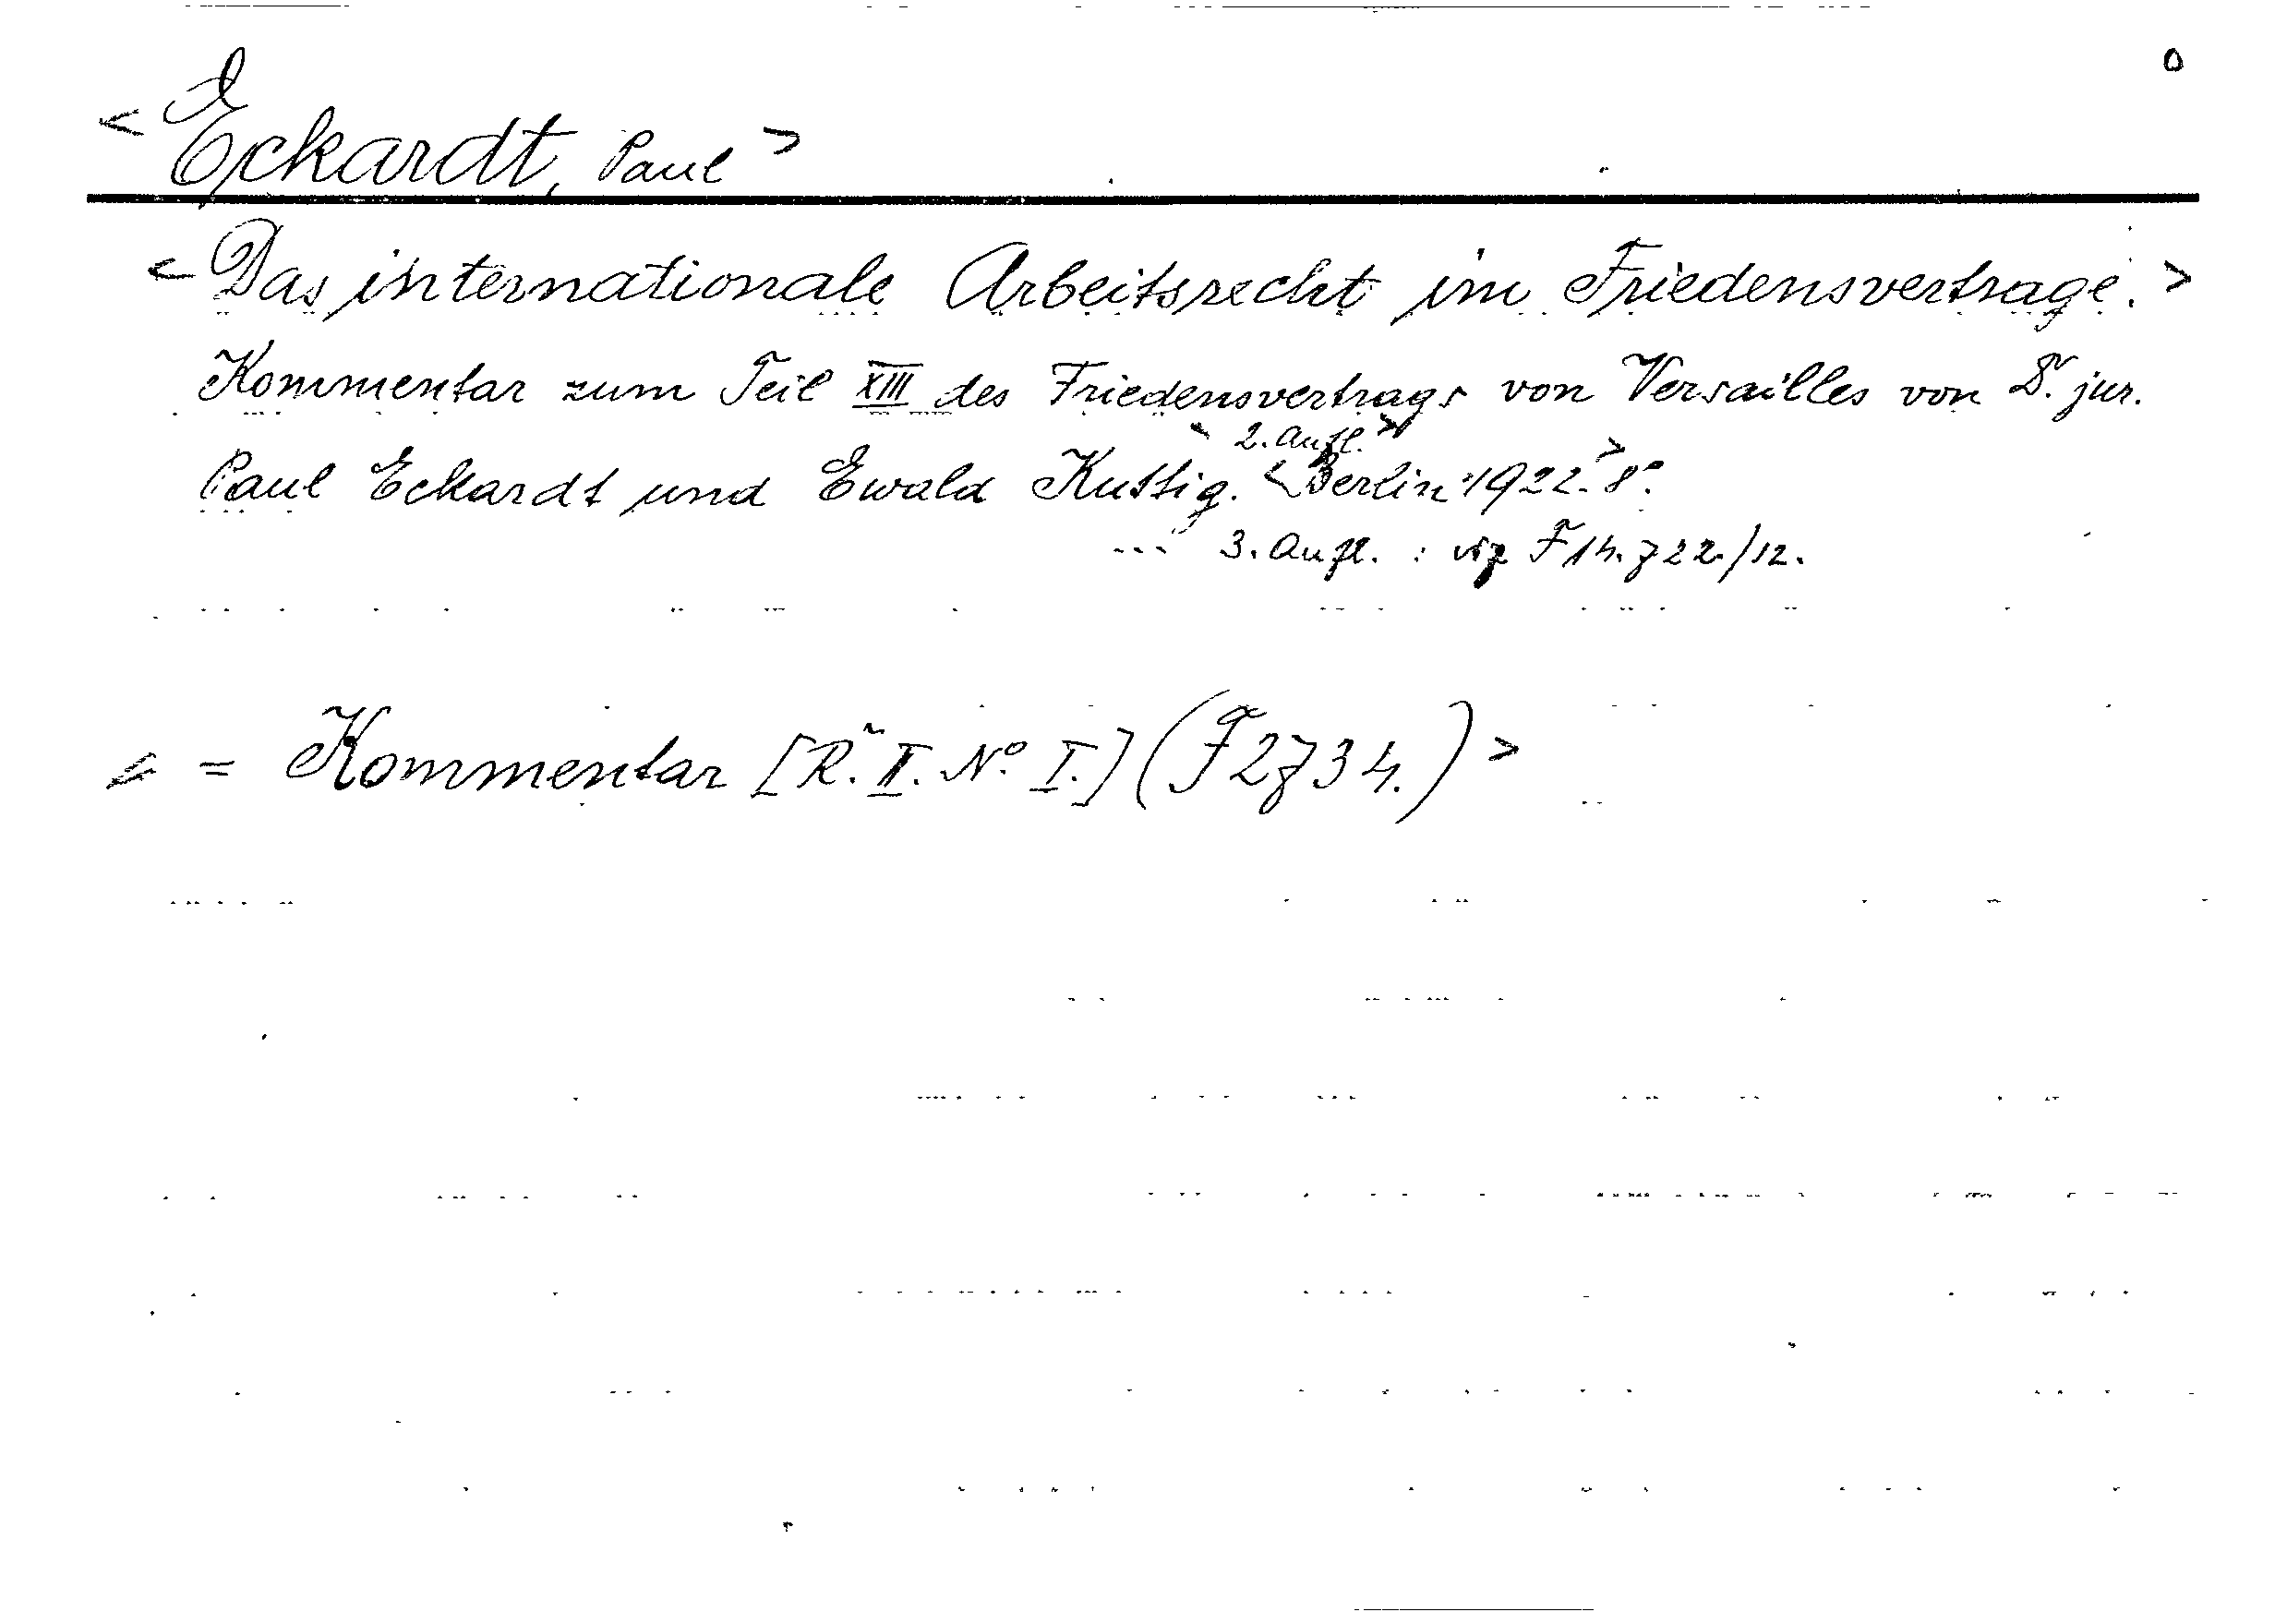 o
<Eckardt, Paul>
<Das internationale Arbeitsrecht im Friedensvertrage.>
Kommentar zum Teil XIII des Friedensvertrags von Versailles von Dr. jur.
<2. Aufl.>
Paul Eckardt und Ewald Kuttig. <Berlin 1922.> 8°.
... 3. Aufl. : viz F 14. z 22./12.
< = Kommentar [R. II. No. I.] (F 2734.) >